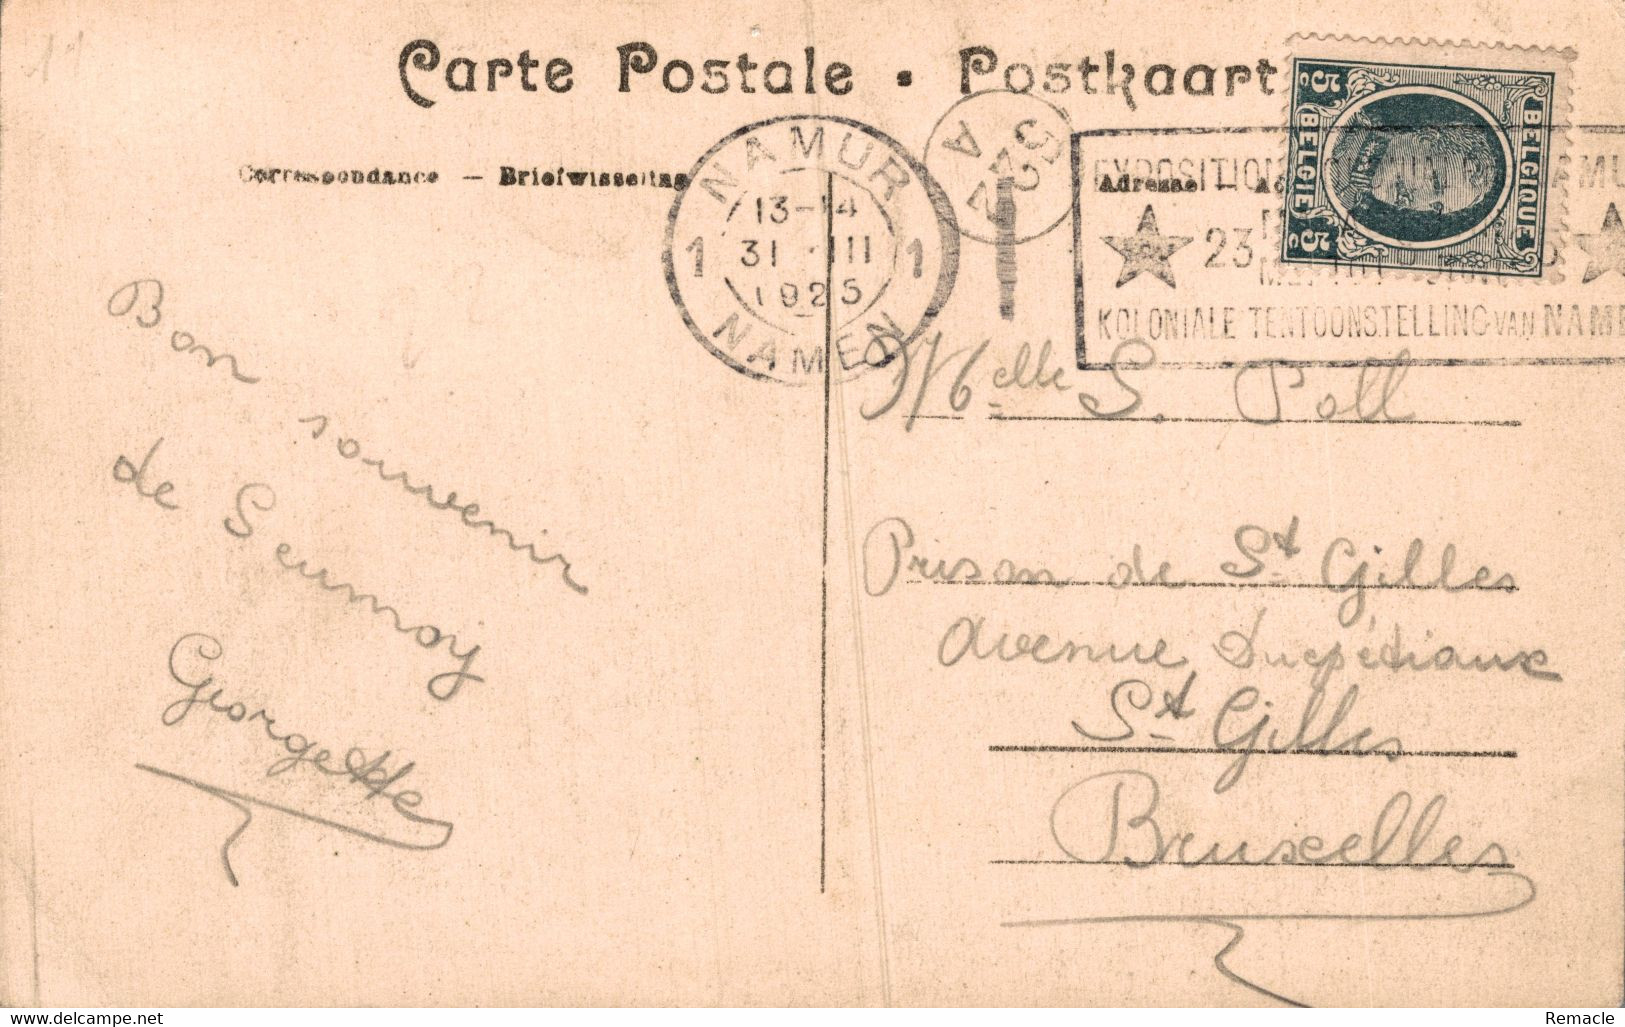 11
Carte Postale • Postkaart
Correspondance — Briefwisseling
Adresse —
NAMUR
13-14
31 III
1925
1 1
NAMEN
3422
A
EXPOSITION
23
KOLONIALE TENTOONSTELLING VAN NAME
5c BELGIE 5c
BELGIQUE
Bon souvenir
de Seumoy
Georgette
Melle S. Poll
Prison de St Gilles
Avenue Ducpétiaux
St Gilles
Bruxelles
www.delcampe.net
Remacle